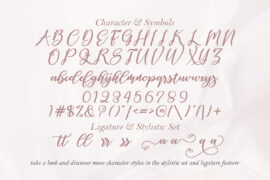 Character & Symbols
ABCDEFGHIJKLMN
OPQRSTUVWXYZ
abcdefghijklmnopqrstuvwxyz
0123456789
Ligature & Stylistic Set
tt ll rr ss a a
take a look and discover more character styles in the stylistic set and ligature feature